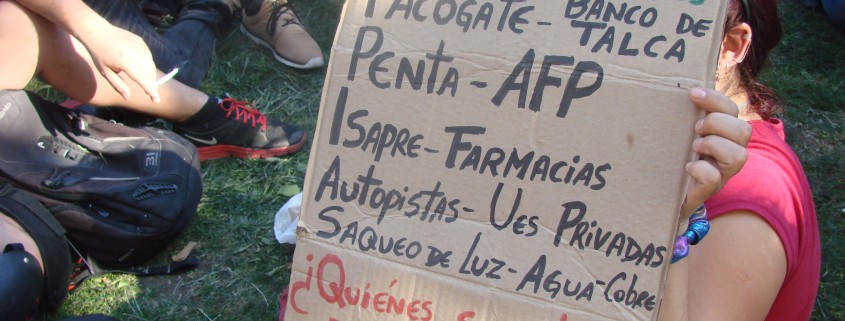 PACOGATE - BANCO DE
TALCA
PENTA - AFP
ISAPRE - FARMACIAS
AUTOPISTAS - UES PRIVADAS
SAQUEO DE LUZ - AGUA - COBRE
¿QUIÉNES
31